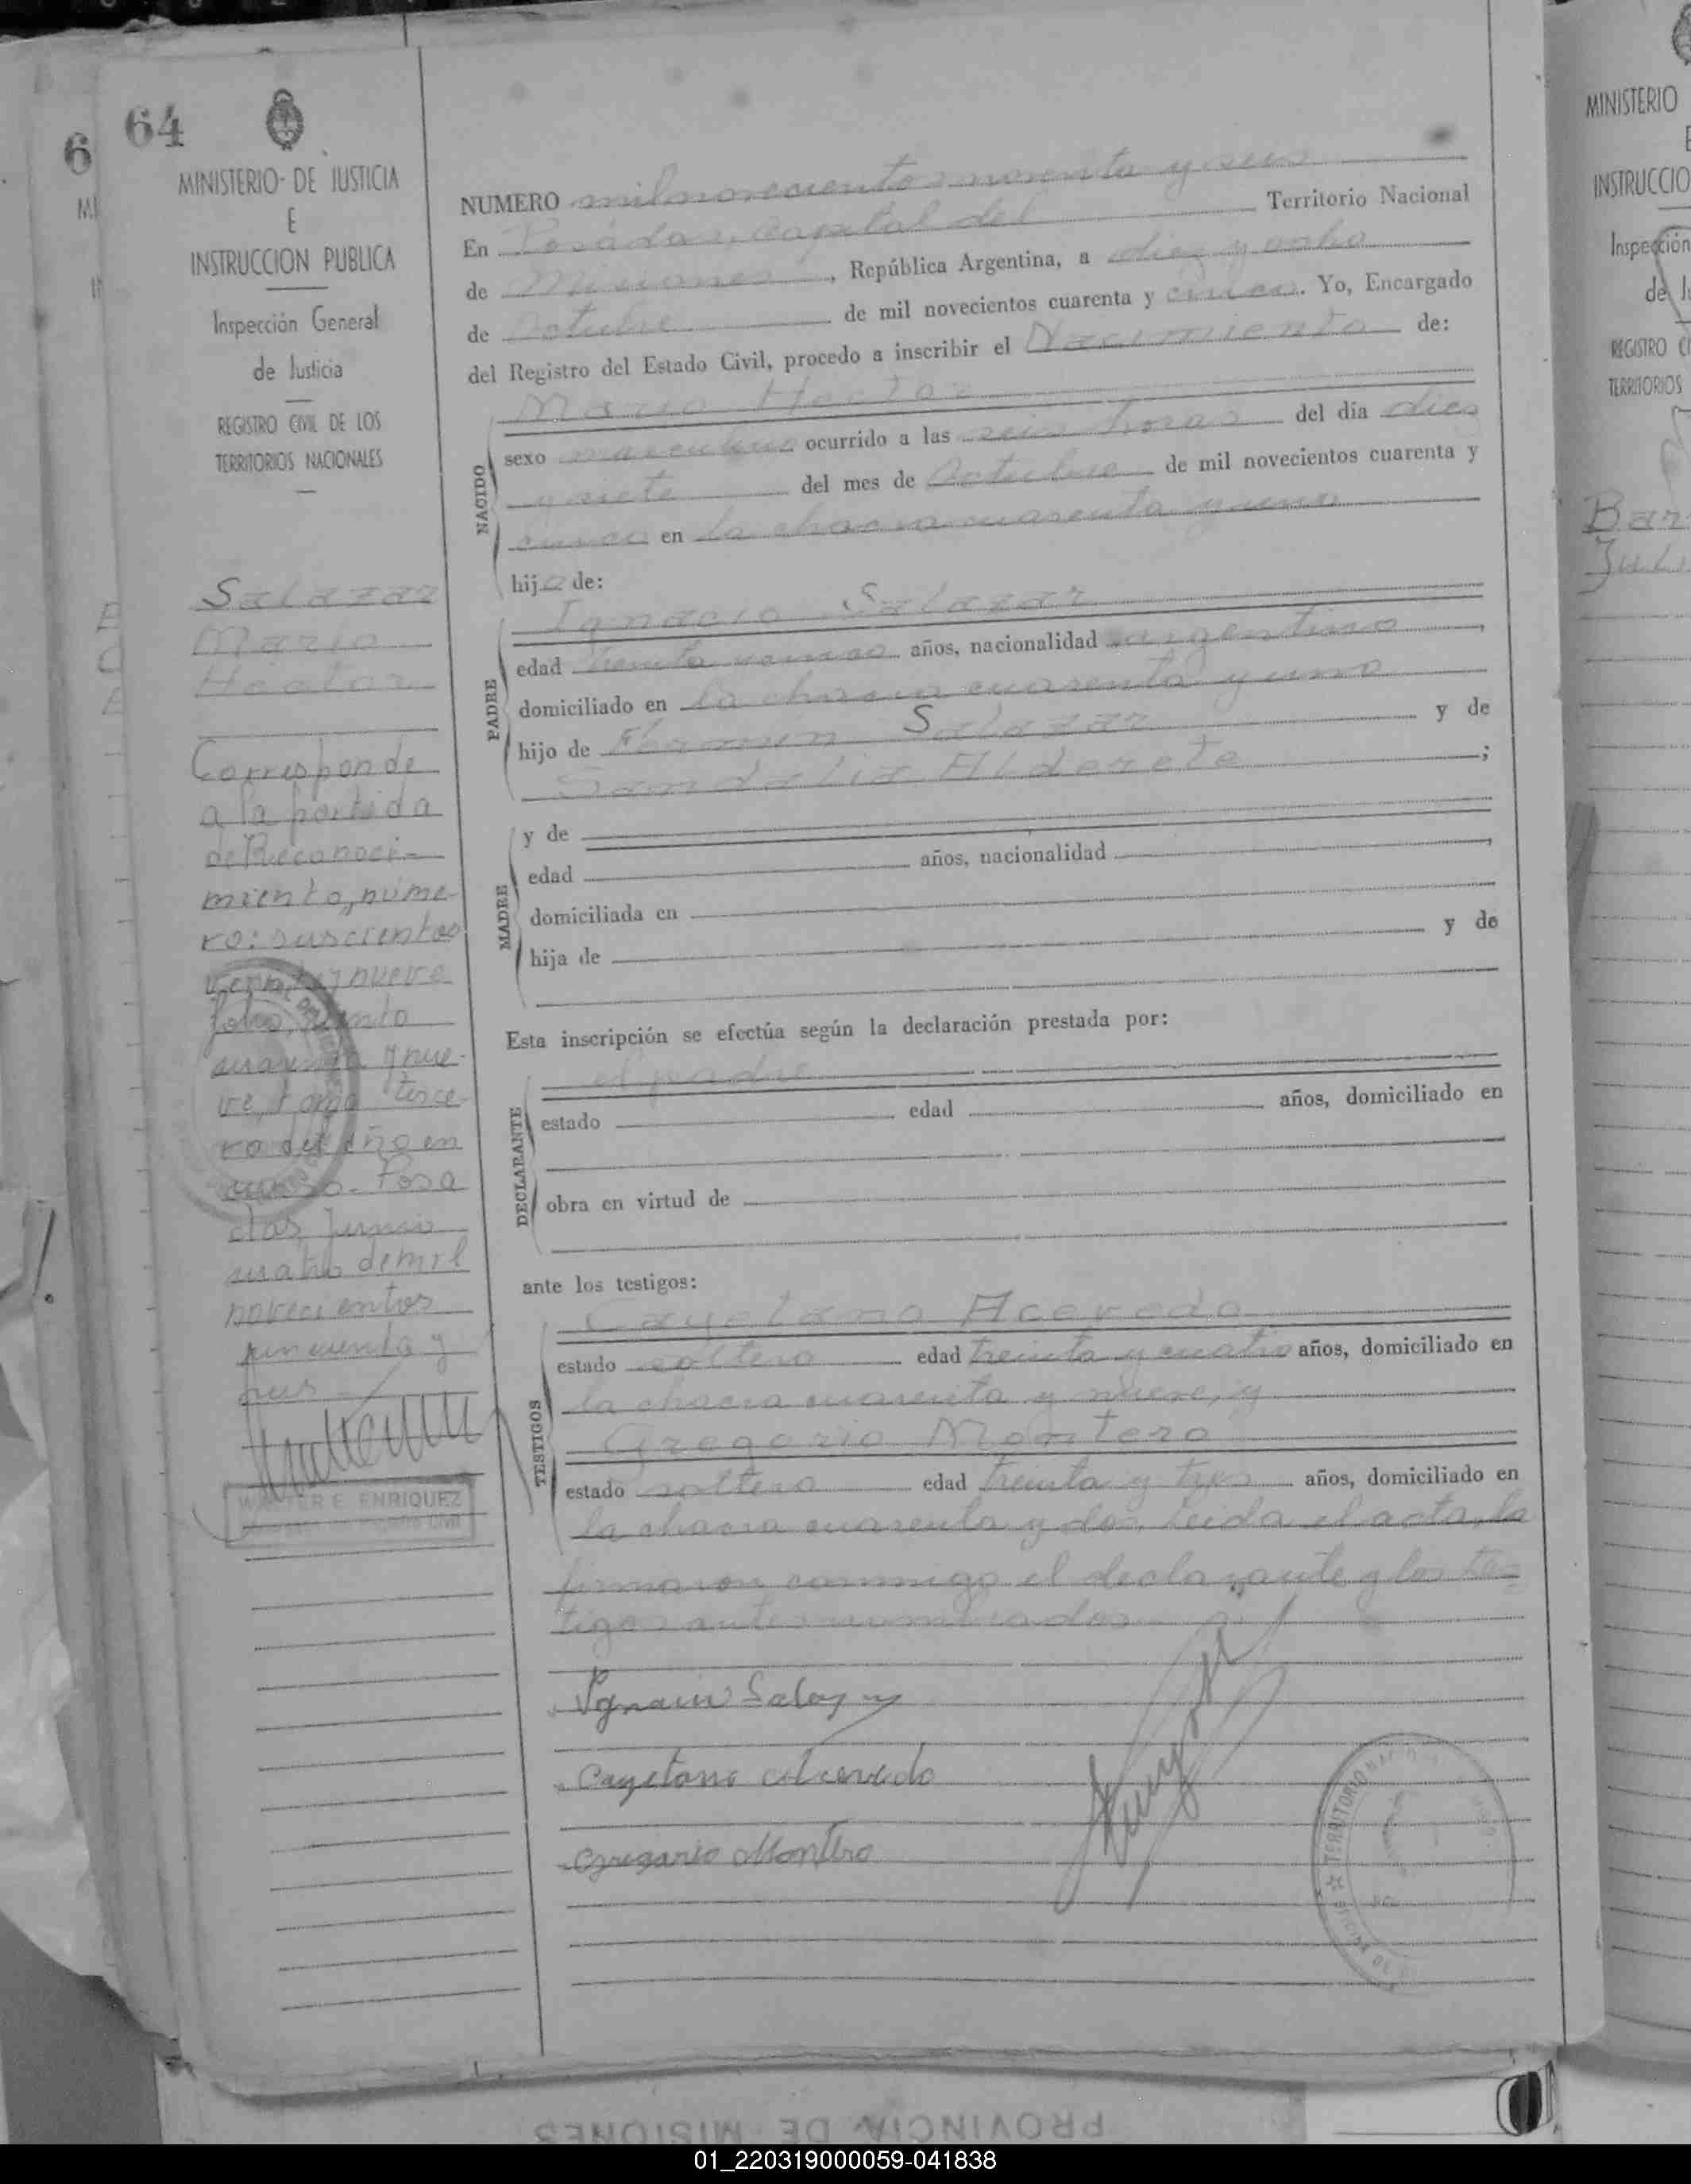 64
6
MINISTERIO DE JUSTICIA
E
INSTRUCCION PUBLICA
Inspección General
de Justicia
REGISTRO CIVIL DE LOS
TERRITORIOS NACIONALES
Salazar
Mario
Hector
Corresponde
a la partida
de Reconoci-
miento, núme-
ro:
y nueve
folio, ciento
cuarenta y nue-
ve, tomo terce-
ro del año en
curso. Posa
das, Junio
cuatro de mil
novecientos
cincuenta y
WALTER E. ENRIQUEZ
NUMERO mil novecientos noventa y seis
En Posadas, Capital del Territorio Nacional
de Misiones, República Argentina, a diez y ocho
de Octubre de mil novecientos cuarenta y cinco. Yo, Encargado
del Registro del Estado Civil, procedo a inscribir el Nacimiento de:
NACIDO
Mario Hector
sexo masculino ocurrido a las seis horas del día diez
y siete del mes de Octubre de mil novecientos cuarenta y
cinco en la chacra cuarenta y uno
hijo de:
PADRE
Ignacio Salazar
edad treinta y cinco años, nacionalidad argentino,
domiciliado en la chacra cuarenta y uno
hijo de Salazar y de
Sandalia Alderete;
MADRE
y de
edad años, nacionalidad,
domiciliada en
hija de y de
Esta inscripción se efectúa según la declaración prestada por:
DECLARANTE
el padre
estado edad años, domiciliado en
obra en virtud de
ante los testigos:
TESTIGOS
Cayetano Acevedo
estado soltero edad treinta y cuatro años, domiciliado en
la chacra cuarenta y nueve, y
Gregorio Montero
estado soltero edad treinta y tres años, domiciliado en
la chacra cuarenta y dos. Leida el acta, la
firmaron conmigo el declarante y los tes-
tigos antes nombrados
Ignacio Salazar
Cayetano Acevedo
Gregorio Montero
TERRITORIO
MINISTERIO
INSTRUCCIO
Inspección
de Ju
REGISTRO CI
TERRITORIOS
Bar
Juli
PROVINCIA DE MISIONES
01_220319000059-041838